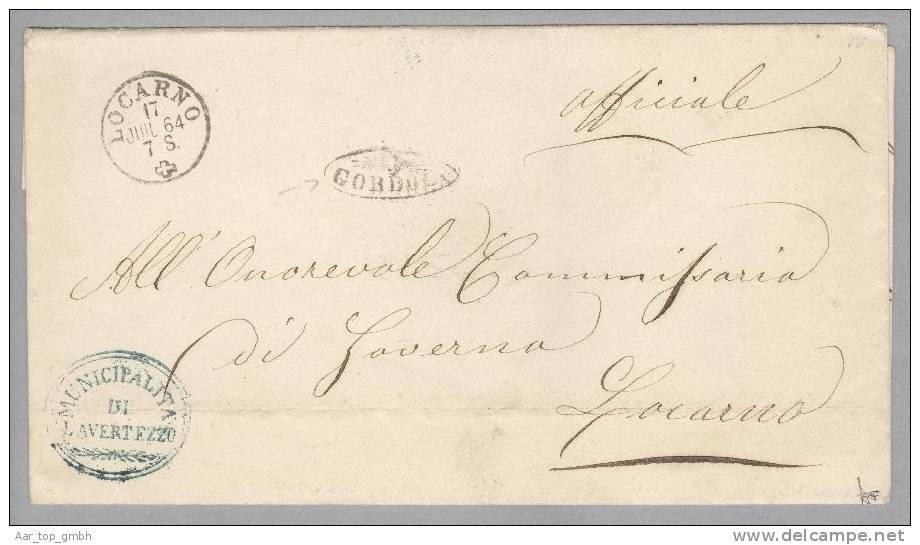 LOCARNO
17
JUIL 64
7 S.
officiale
GORDOLA
All' Onorevole Commissario
di Governo
Locarno
MUNICIPALITÀ
DI
LAVERTEZZO
Aar_top_gmbh
www.delcampe.net